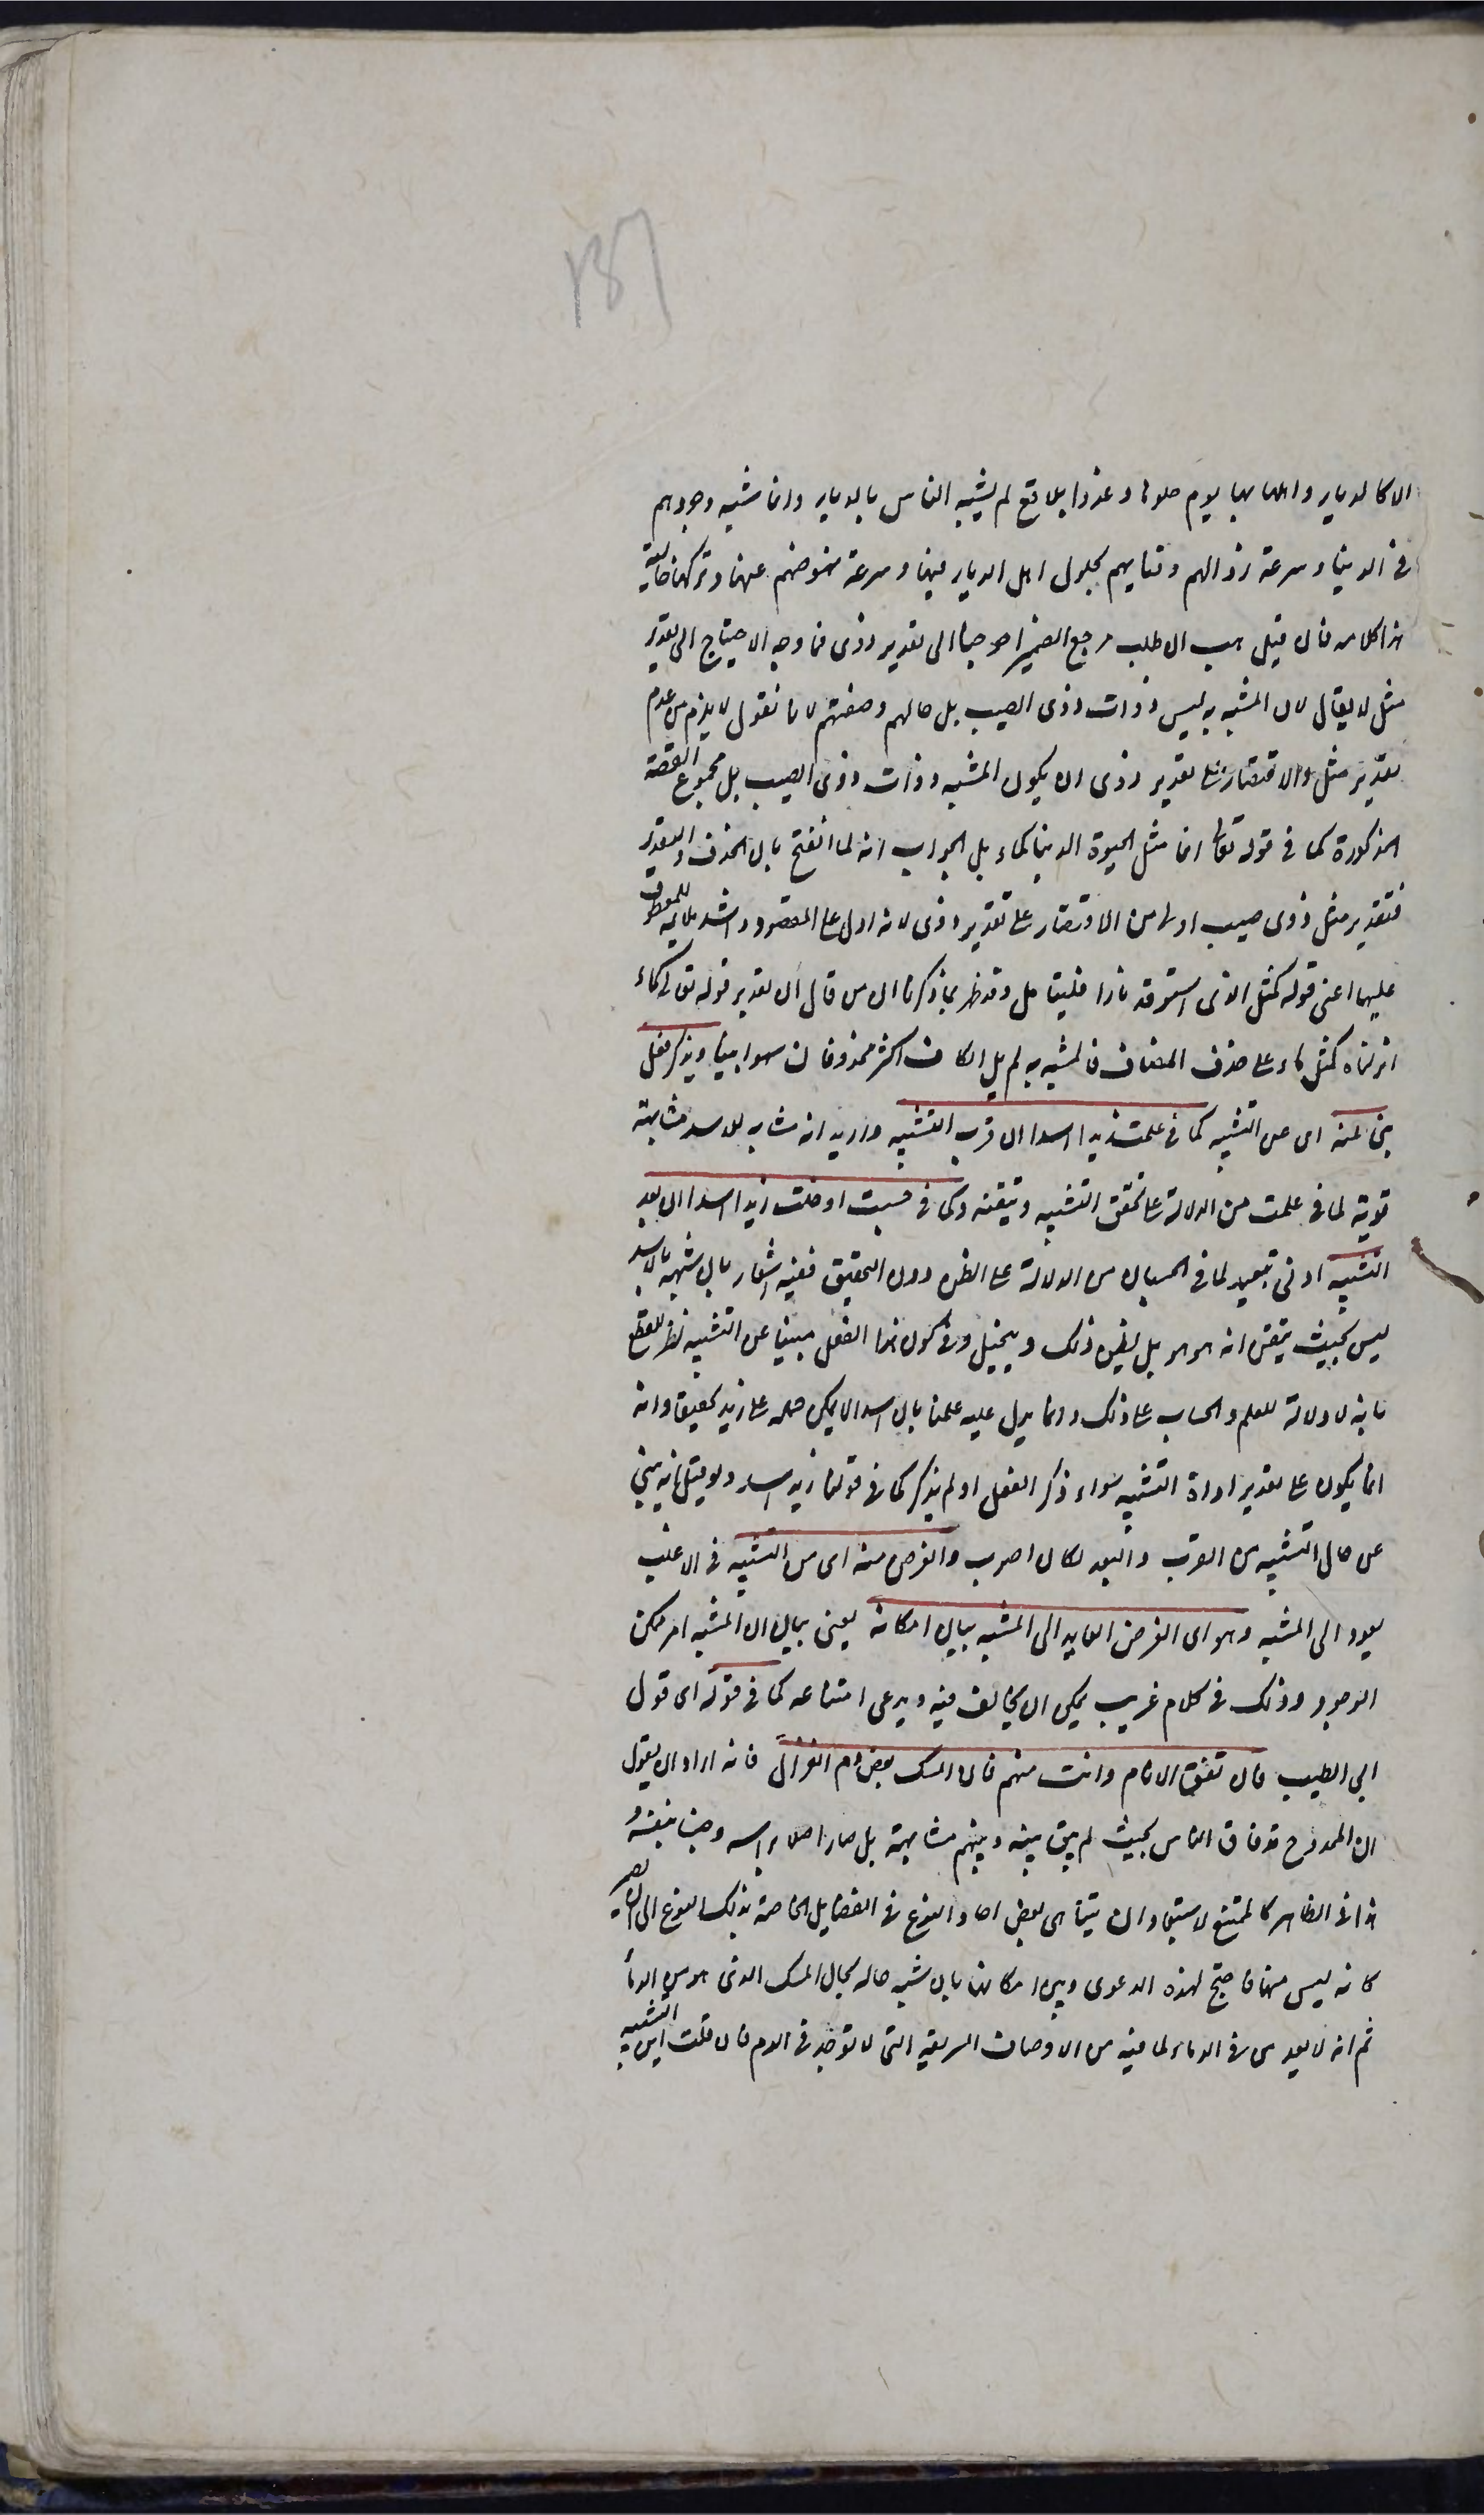 ١٥٧
الا كالديار واهلها بها يوم حلوها وغدوا بلاقع لم يشبه الناس بالديار وانما شبه وجودهم
فى الدنيا وسرعة زوالهم وفنايهم بحلول اهل الديار فيها وسرعة نهوضهم عنها وتركها خالية
هذا كلامه فان قيل هب ان طلب مرجع الضمير احوجنا الى تقدير ذوى فما وجه الاحتياج الى تقدير
مثل لا يقال لان المشبه به ليس ذوات ذوى الصيب بل حالهم وصفتهم لانا نقول لا يلزم من عدم
تقدير مثل والاقتصار على تقدير ذوى ان يكون المشبه به ذوات ذوى الصيب بل مجموع القصة
المذكورة كما فى قوله تعالى انما مثل الحيوة الدنيا كماء بل الجواب انه لما انفتح باب الحذف والتقدير
فتقدير مثل ذوى صيب اولى من الاقتصار على تقدير ذوى لانه ادل على المقصود واشد ملايمة للمعطوف
عليها اعنى قوله كمثل الذى استوقد نارا فليتامل وقد ظهر بما ذكرنا ان من قال ان تقدير قوله تعالى كماء
انزلناه كمثل ماء على حذف المضاف فالمشبه به لم يل الكاف اكثر محذوفا فقد سها سهوا بينا وقد يذكر فعل
ينبئ عنه اى عن التشبيه كما فى علمت زيدا اسدا ان قرب التشبيه واريد انه مشابه للاسد مشابهة
قوية لما فى علمت من الدلالة على تحقق التشبيه وتيقنه وكما فى حسبت او خلت زيدا اسدا ان بعد
التشبيه ادنى تبعيد لما فى الحسبان من الدلالة على الظن دون التحقيق ففيه اشعار بان شبهه بالاسد
ليس بحيث يتيقن انه هو هو بل يظن ذلك ويتخيل وفى كون هذا الفعل منبئا عن التشبيه نظر للقطع
بانه لا دلالة للعلم والحساب على ذلك وانما يدل عليه علمنا بان اسدا لا يمكن حمله على زيد تحقيقا وانه
انما يكون على تقدير اداة التشبيه سواء ذكر الفعل او لم يذكر كما فى قولنا زيد اسد ولو قيل انه ينبئ
عن حال التشبيه من القرب والبعد لكان اصوب والغرض منه اى من التشبيه فى الاغلب
يعود الى المشبه وهو اى الغرض العايد الى المشبه بيان امكانه يعنى بيان ان المشبه امر ممكن
الوجود وذلك فى كلام غريب يمكن ان يخالف فيه ويدعى امتناعه كما فى قوله اى قول
ابى الطيب فان تفق الانام وانت منهم فان المسك بعض دم الغزال فانه اراد ان يقول
ان الممدوح قد فاق الناس بحيث لم يبق بينه وبينهم مشابهة بل صار اصلا براسه وجنسا بنفسه و
هذا فى الظاهر كالممتنع لاستبعاد ان يتناهى بعض احاد النوع فى الفضايل الخاصة بذلك النوع الى ان يصير
كانه ليس منها فاحتج لهذه الدعوى وبين امكانها بان شبه حاله بحال المسك الذى هو من الدماء
ثم انه لا يعد من الدماء لما فيه من الاوصاف الشريفة التى لا توجد فى الدم فان قلت اين التشبيه